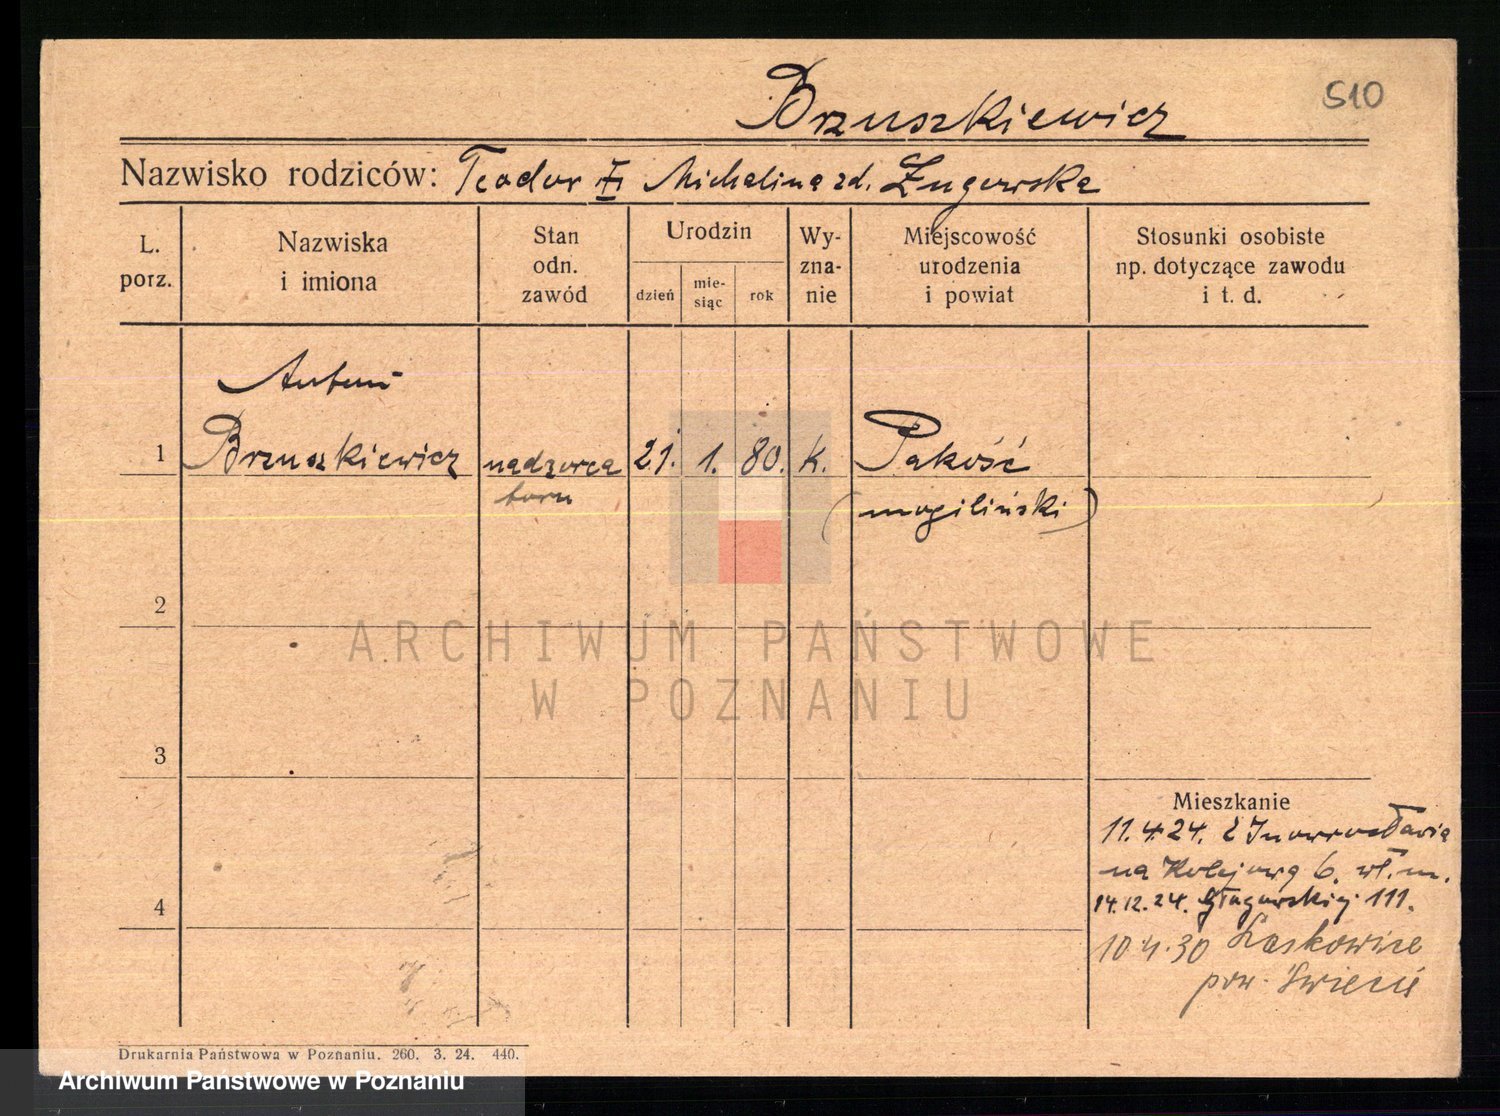 510
Brzuszkiewicz
Nazwisko rodziców: Teodor Michalina zd. Żugowska
L. porz.
Nazwiska i imiona
Stan odn. zawód
Urodzin
dzień
mie-siąc
rok
Wy-zna-nie
Miejscowość urodzenia i powiat
Stosunki osobiste np. dotyczące zawodu i t. d.
Antoni
1 Brzuszkiewicz nadzorca 21. 1. 80. k. Pakość
toru (mogiliński)
2
3
4
Mieszkanie
11.4.24. z Inowrocławia
na Kolejową 6. wł. m.
14.12.24. 111.
10.4.30 Laskowice
pow. Świecie
Drukarnia Państwowa w Poznaniu. 260. 3. 24. 440.
ARCHIWUM PAŃSTWOWE
W POZNANIU
Archiwum Państwowe w Poznaniu